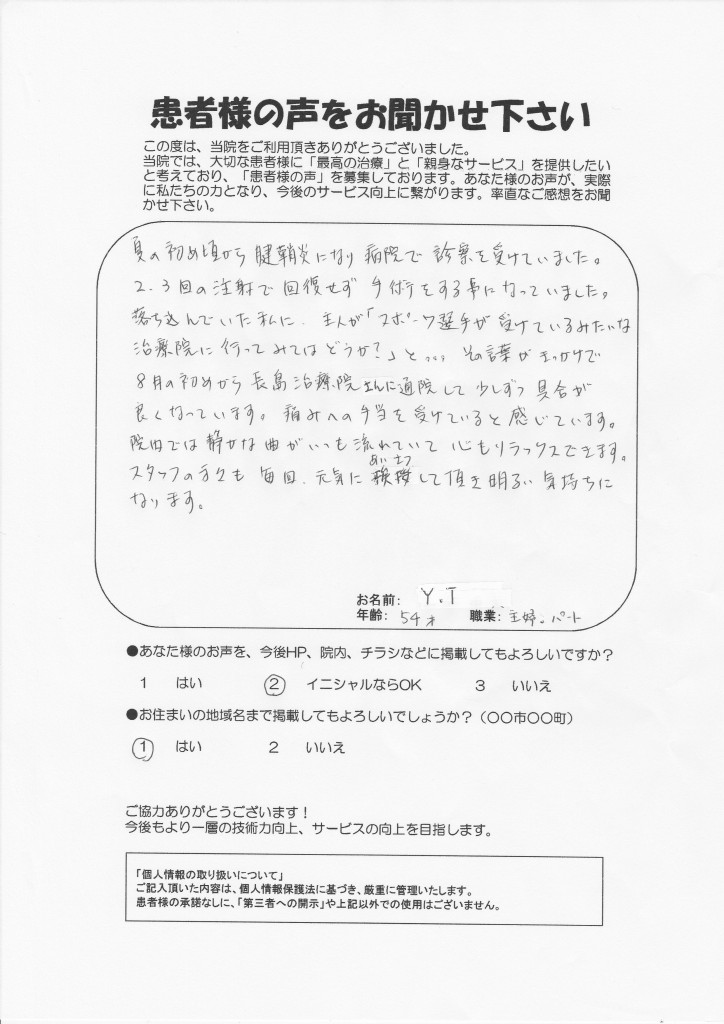 患者様の声をお聞かせ下さい
この度は、当院をご利用頂きありがとうございました。
当院では、大切な患者様に「最高の治療」と「親身なサービス」を提供したい
と考えており、「患者様の声」を募集しております。あなた様のお声が、実際
に私たちの力となり、今後のサービス向上に繋がります。率直なご感想をお聞
かせ下さい。
夏の初め頃から腱鞘炎になり病院で診察を受けていました。
2、3回の注射で回復せず手術をする事になっていました。
落ち込んでいた私に、主人が「スポーツ選手が受けているみたいな
治療院に行ってみてはどうか?」と... その言葉がきっかけで
8月の初めから長島治療院さんに通院して少しずつ具合が
良くなっています。痛みへの手当を受けていると感じています。
院内では静かな曲がいつも流れていて心もリラックスできます。
スタッフの方々も毎回、元気に挨拶して頂き明るい気持ちに
あいさつ
なります。
お名前: Y.T
年齢: 54才 職業: 主婦。パート
●あなた様のお声を、今後HP、院内、チラシなどに掲載してもよろしいですか?
1 はい ② イニシャルならOK 3 いいえ
●お住まいの地域名まで掲載してもよろしいでしょうか?(〇〇市〇〇町)
① はい 2 いいえ
ご協力ありがとうございます!
今後もより一層の技術力向上、サービスの向上を目指します。
「個人情報の取り扱いについて」
ご記入頂いた内容は、個人情報保護法に基づき、厳重に管理いたします。
患者様の承諾なしに、「第三者への開示」や上記以外での使用はございません。